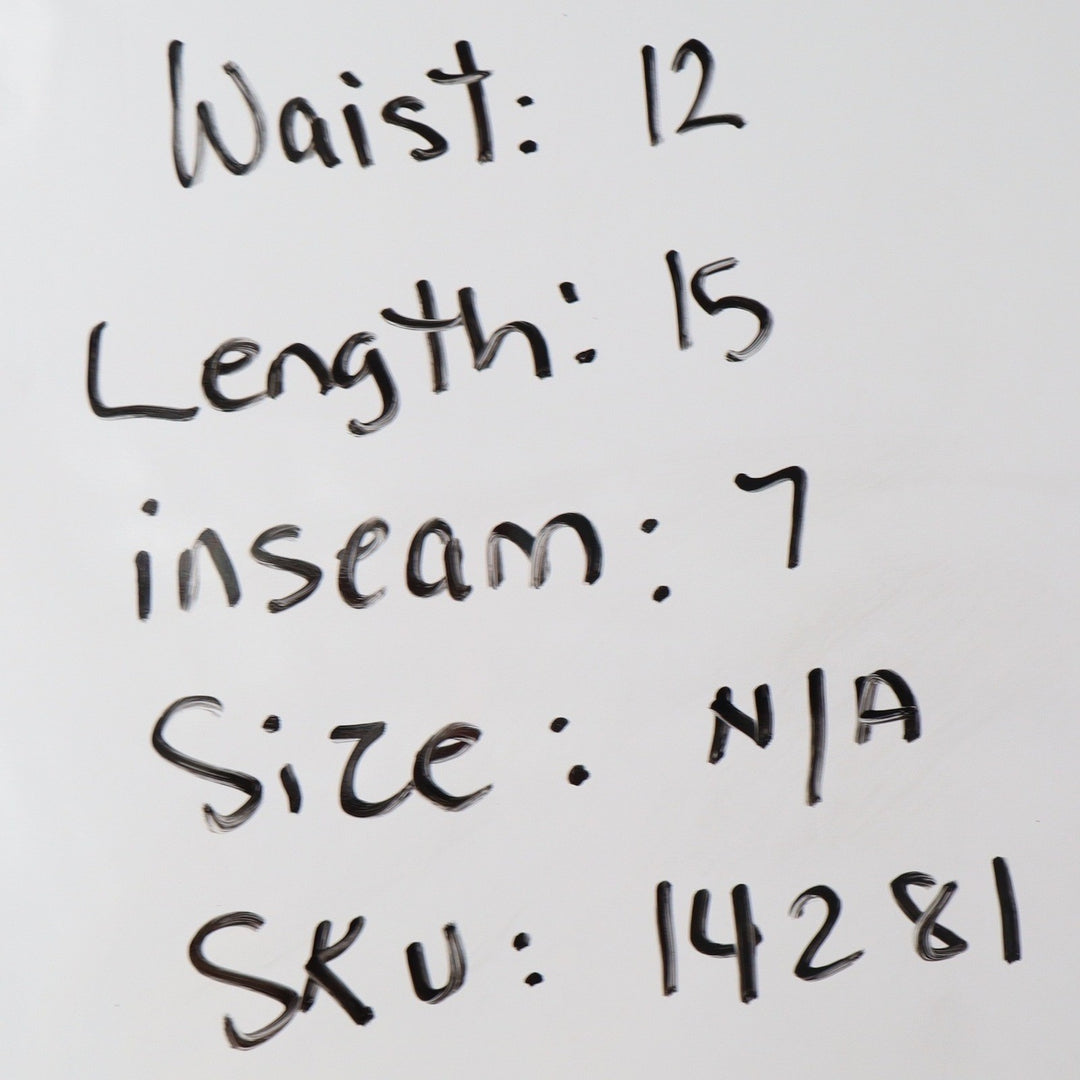 Waist: 12
Length: 15
inseam: 7
Size: N/A
SKU: 14281